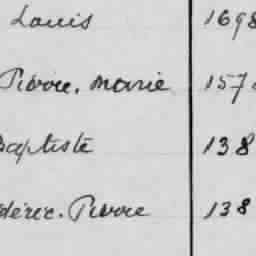 Louis 1698
Pierre. Marie 157
Baptiste 138
déric. Pierre 138